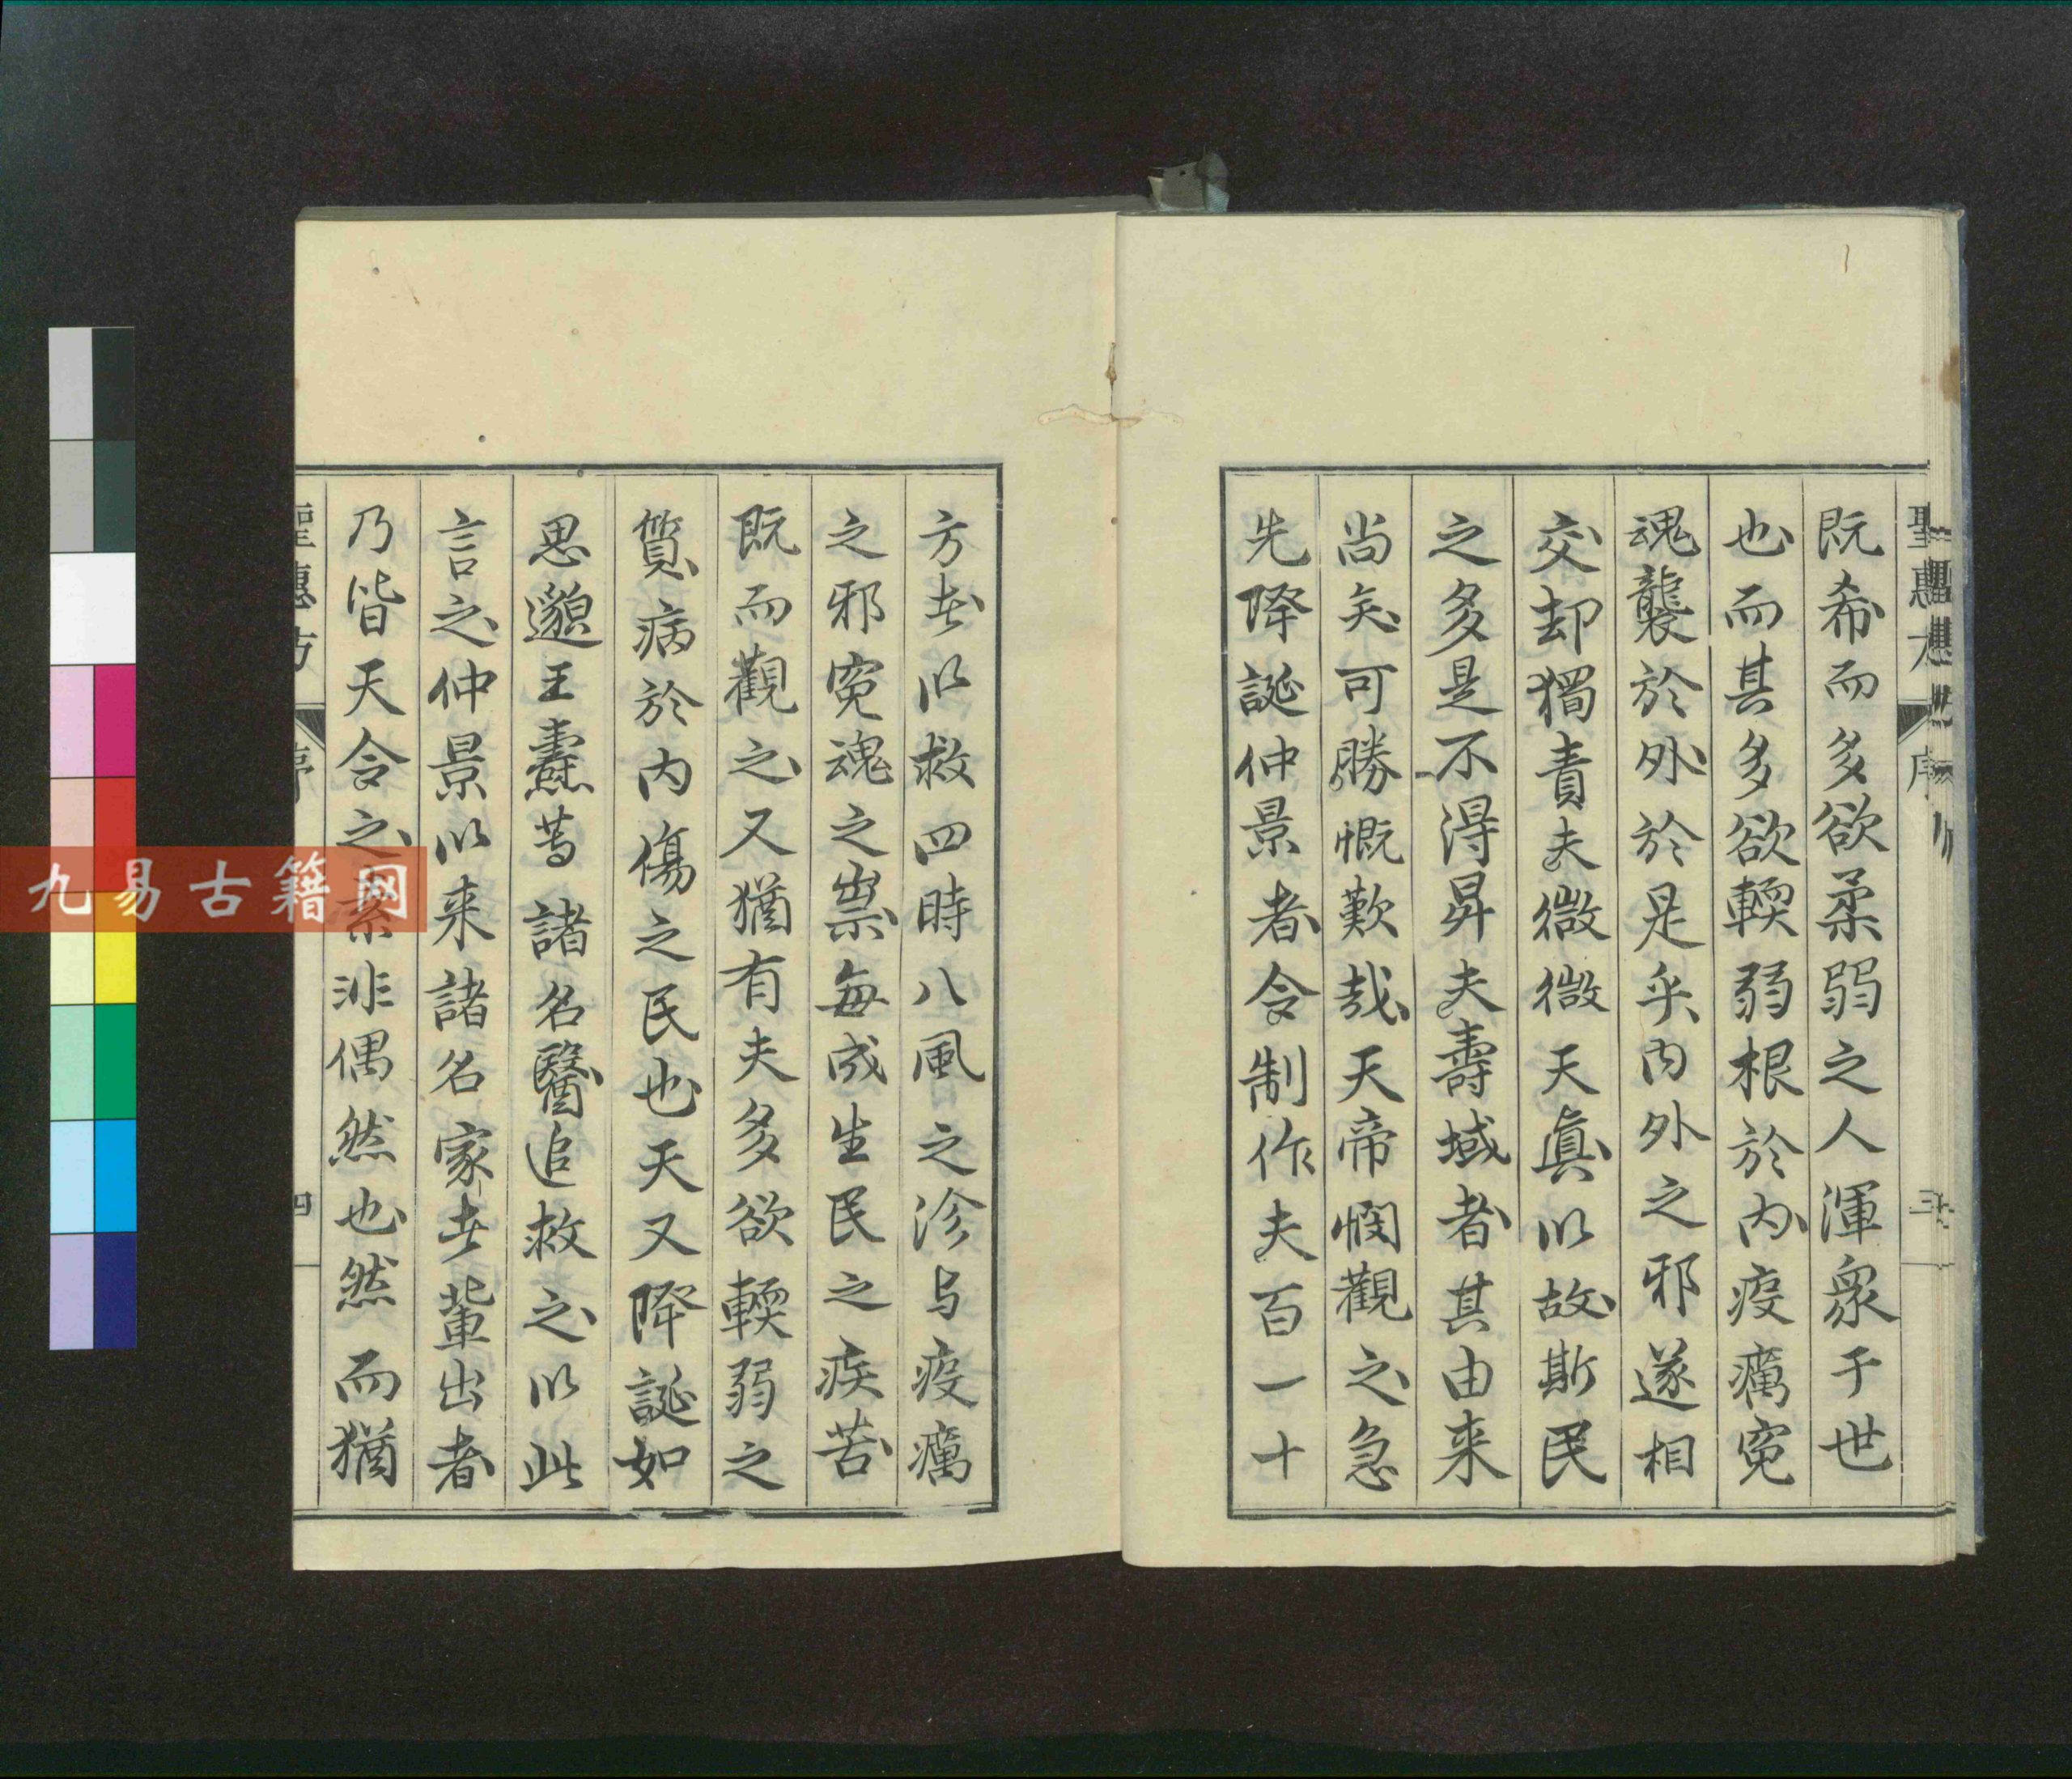 聖惠方 序 三
既希而多欲柔弱之人渾衆于世
也而其多欲輭弱根於內疫癘寃
魂襲於外於是乎内外之邪遂相
交却獨責夫微微天真以故斯民
之多是不得昇夫壽域者其由来
尚矣可勝慨歎哉天帝憫觀之急
先降誕仲景者令制作夫百一十
方㪽以救四時八風之沴与疫癘
之邪寃魂之祟每成生民之疾苦
既而觀之又猶有夫多欲輭弱之
質病於内傷之民也天又降誕如
思邈王燾等諸名醫追救之以此
言之仲景以来諸名家㪽輩出者
乃皆天令之素非偶然也然而猶
聖惠方 序 四
九易古籍网